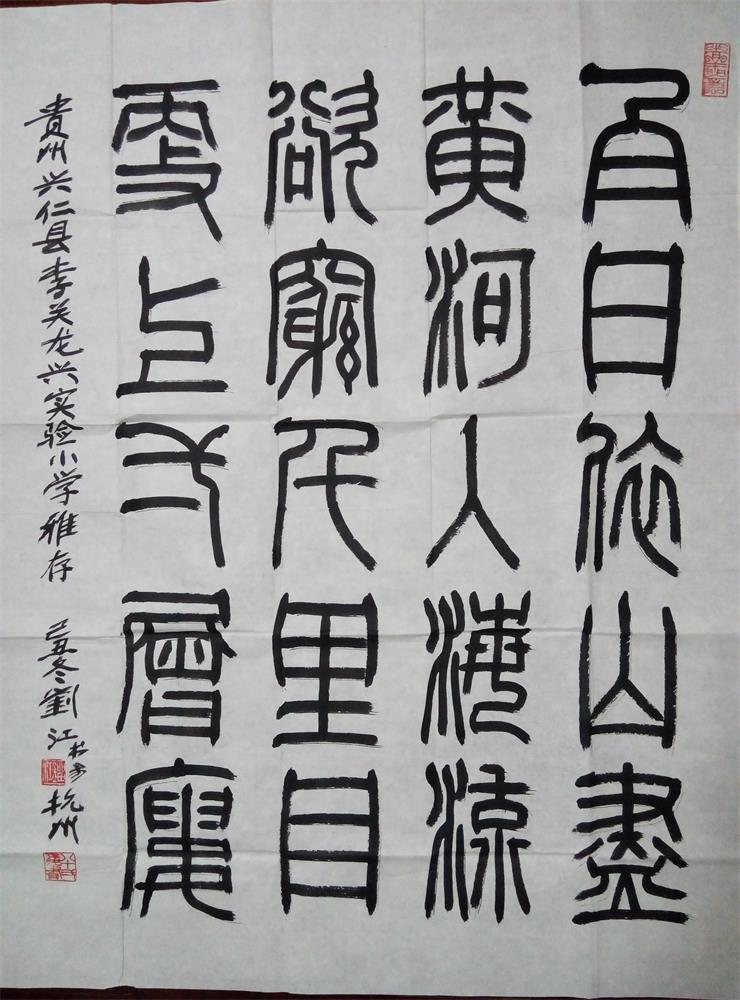 白日依山盡
黃河入海流
欲窮千里目
更上一層樓
贵州兴仁县李关龙兴实验小学雅存 己丑冬劉江 杭州